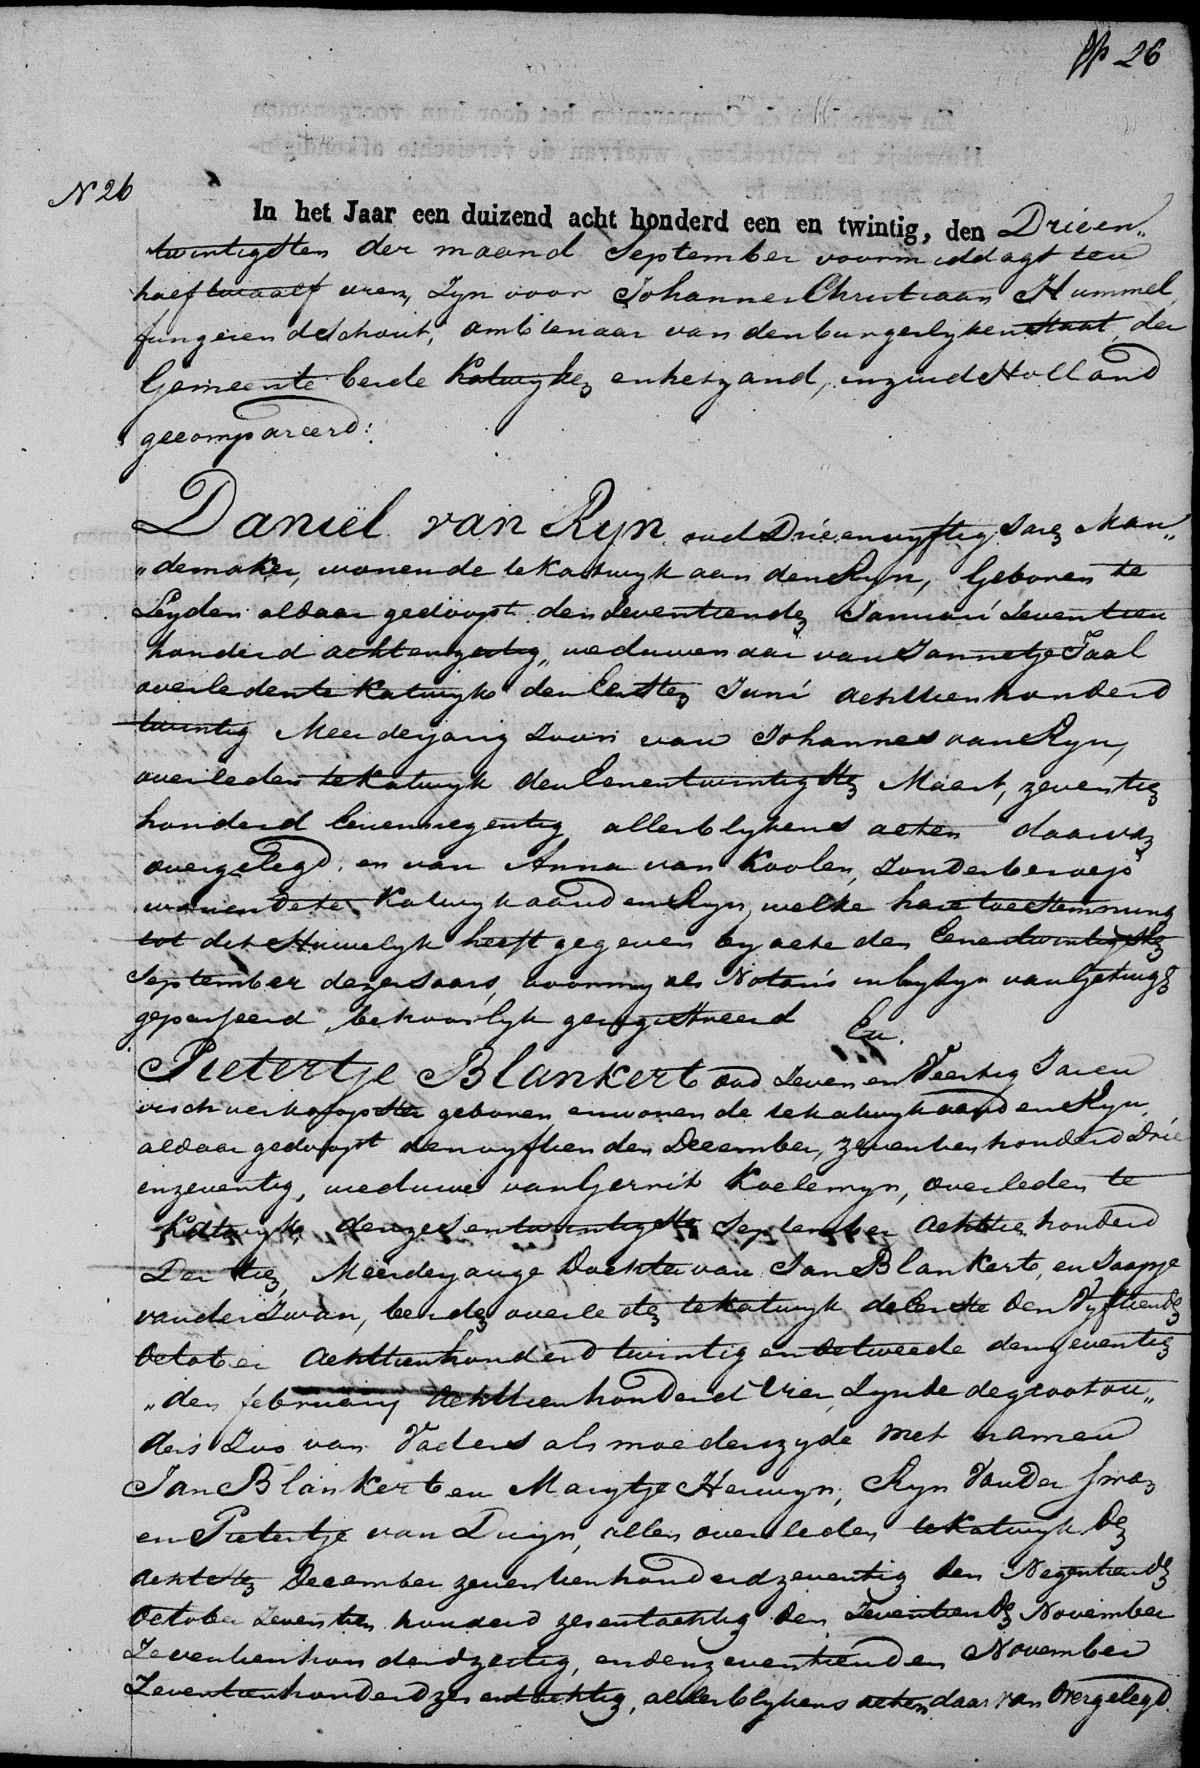 26
N 26
In het Jaar een duizend acht honderd een en twintig, den Drieen„
twintigsten der maand September voormiddagt ten
half twaalf uren, Zyn voor Johannes Christiaan Hummel
fungerende schout, ambtenaar van den burgerlyken staat, der
Gemeente beide Katwyken en het zand, in zuid Holland
gecompareerd:
Daniël van Ryn oud Drie en vyftig Jaren Man„
„demaker, wonende te Katwyk aan den Ryn, Geboren te
Leyden aldaar gedoopt den Zeventienden Januari Zeventien
honderd achtenzestig„ weduwenaar van Jannetje Taal
overleden te Katwyk den Eersten Juni achttienhonderd
twintig Meerderjarig Zoon van Johannes van Ryn,
overleden te Katwyk den Eenentwintigsten Maart, zeventien
honderd Eenennegentig allerblykens acten daarvan
overgelegd, en van Anna van Koolen, Zonder beroep
wonende te Katwyk aan den Ryn, welke hare toestemming
tot dit Huwelyk heeft gegeven by acte den Eenentwintigsten
September dezes Jaars, voor my als Notaris in bijzyn van Getuigen
gepasseerd behoorlyk geregistreerd En.
Pietertje Blankert oud Zeven en Veertig Jaren
vischverkoopster geboren en wonende te Katwyk aan den Ryn,
aldaar gedoopt den vyftienden December, zeventienhonderd Drie
enzeventig, weduwe van Gerrit Koelemyn, overleden te
Katwyk, den zesentwintigsten September achttienhonderd
Dertien, Meerderjarige Dochter van Jan Blankert, en Jaapje
van der Zwan, beiden overleden te Katwyk de Eerste den Vyftienden
October Achttienhonderd twintig en de tweede den zeventien
„den february Achttienhonderd Vier, Zynde de grootou„
ders Zoo van Vaders als moederszyde met namen
Jan Blankert en Marytje Herwyn, Ryn Van der Swan
en Pietertje van Duyn, allen overleden te Katwyk den
achtsten December zeventienhonderdzeventig den Negentienden
October Zeventien honderd zesentachtig den Zeventienden November
Zeventienhonderdzestig, en den zeventienden November
Zeventienhonderdzesentachtig, allerblykens acten daarvan Overgelegd.